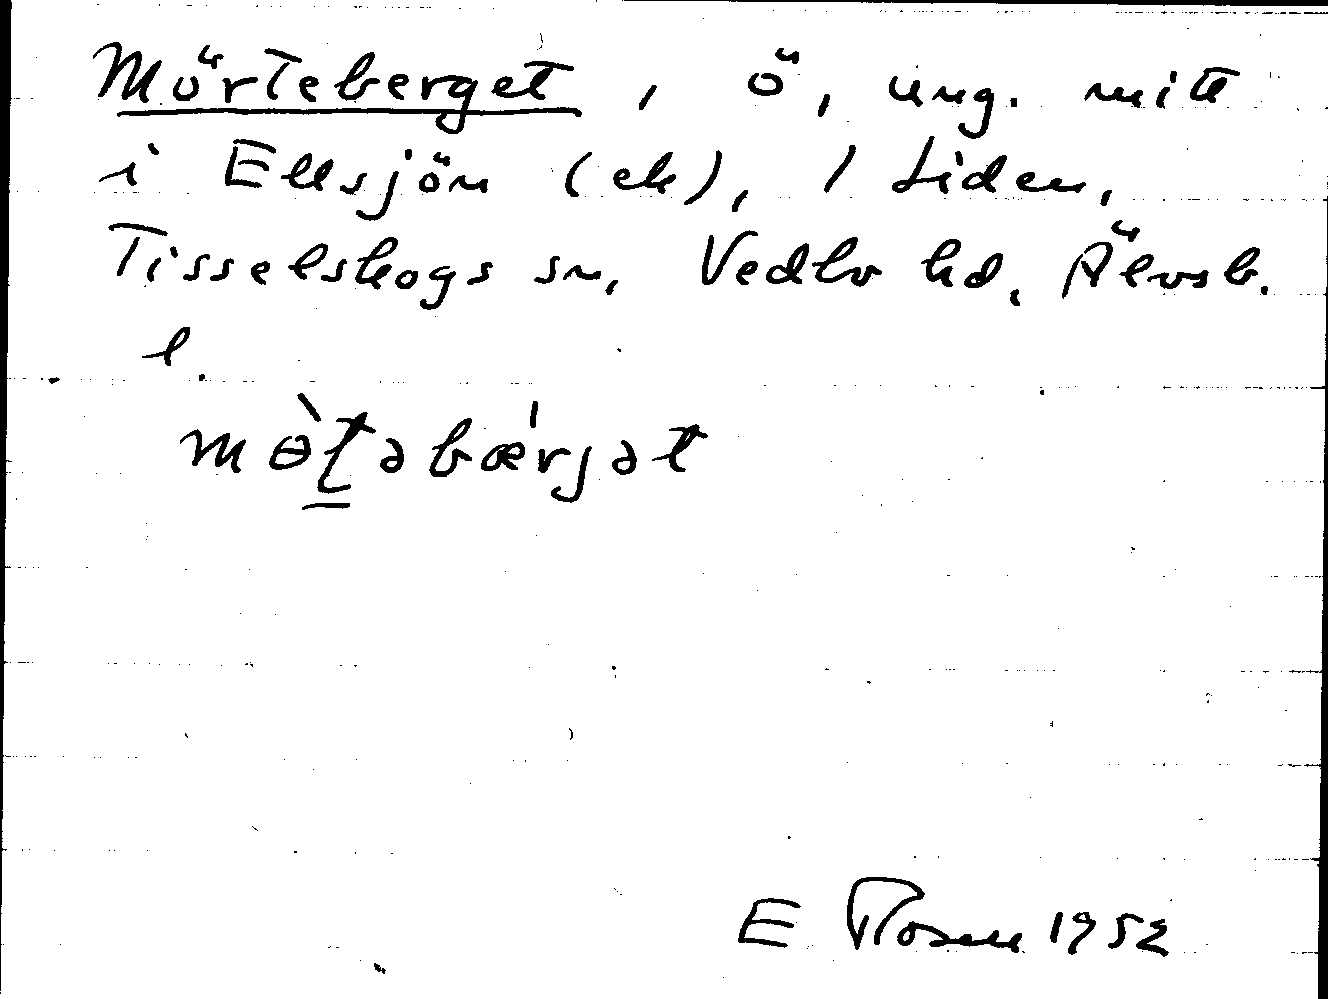 Mörteberget, ö, ung. mitt
i Ellsjön (ek), / Liden,
Tisselskogs sn, Vedbo hd, Älvsb.
l.
mɵ̀ʈəbæ̍rjət
E Rosen 1952